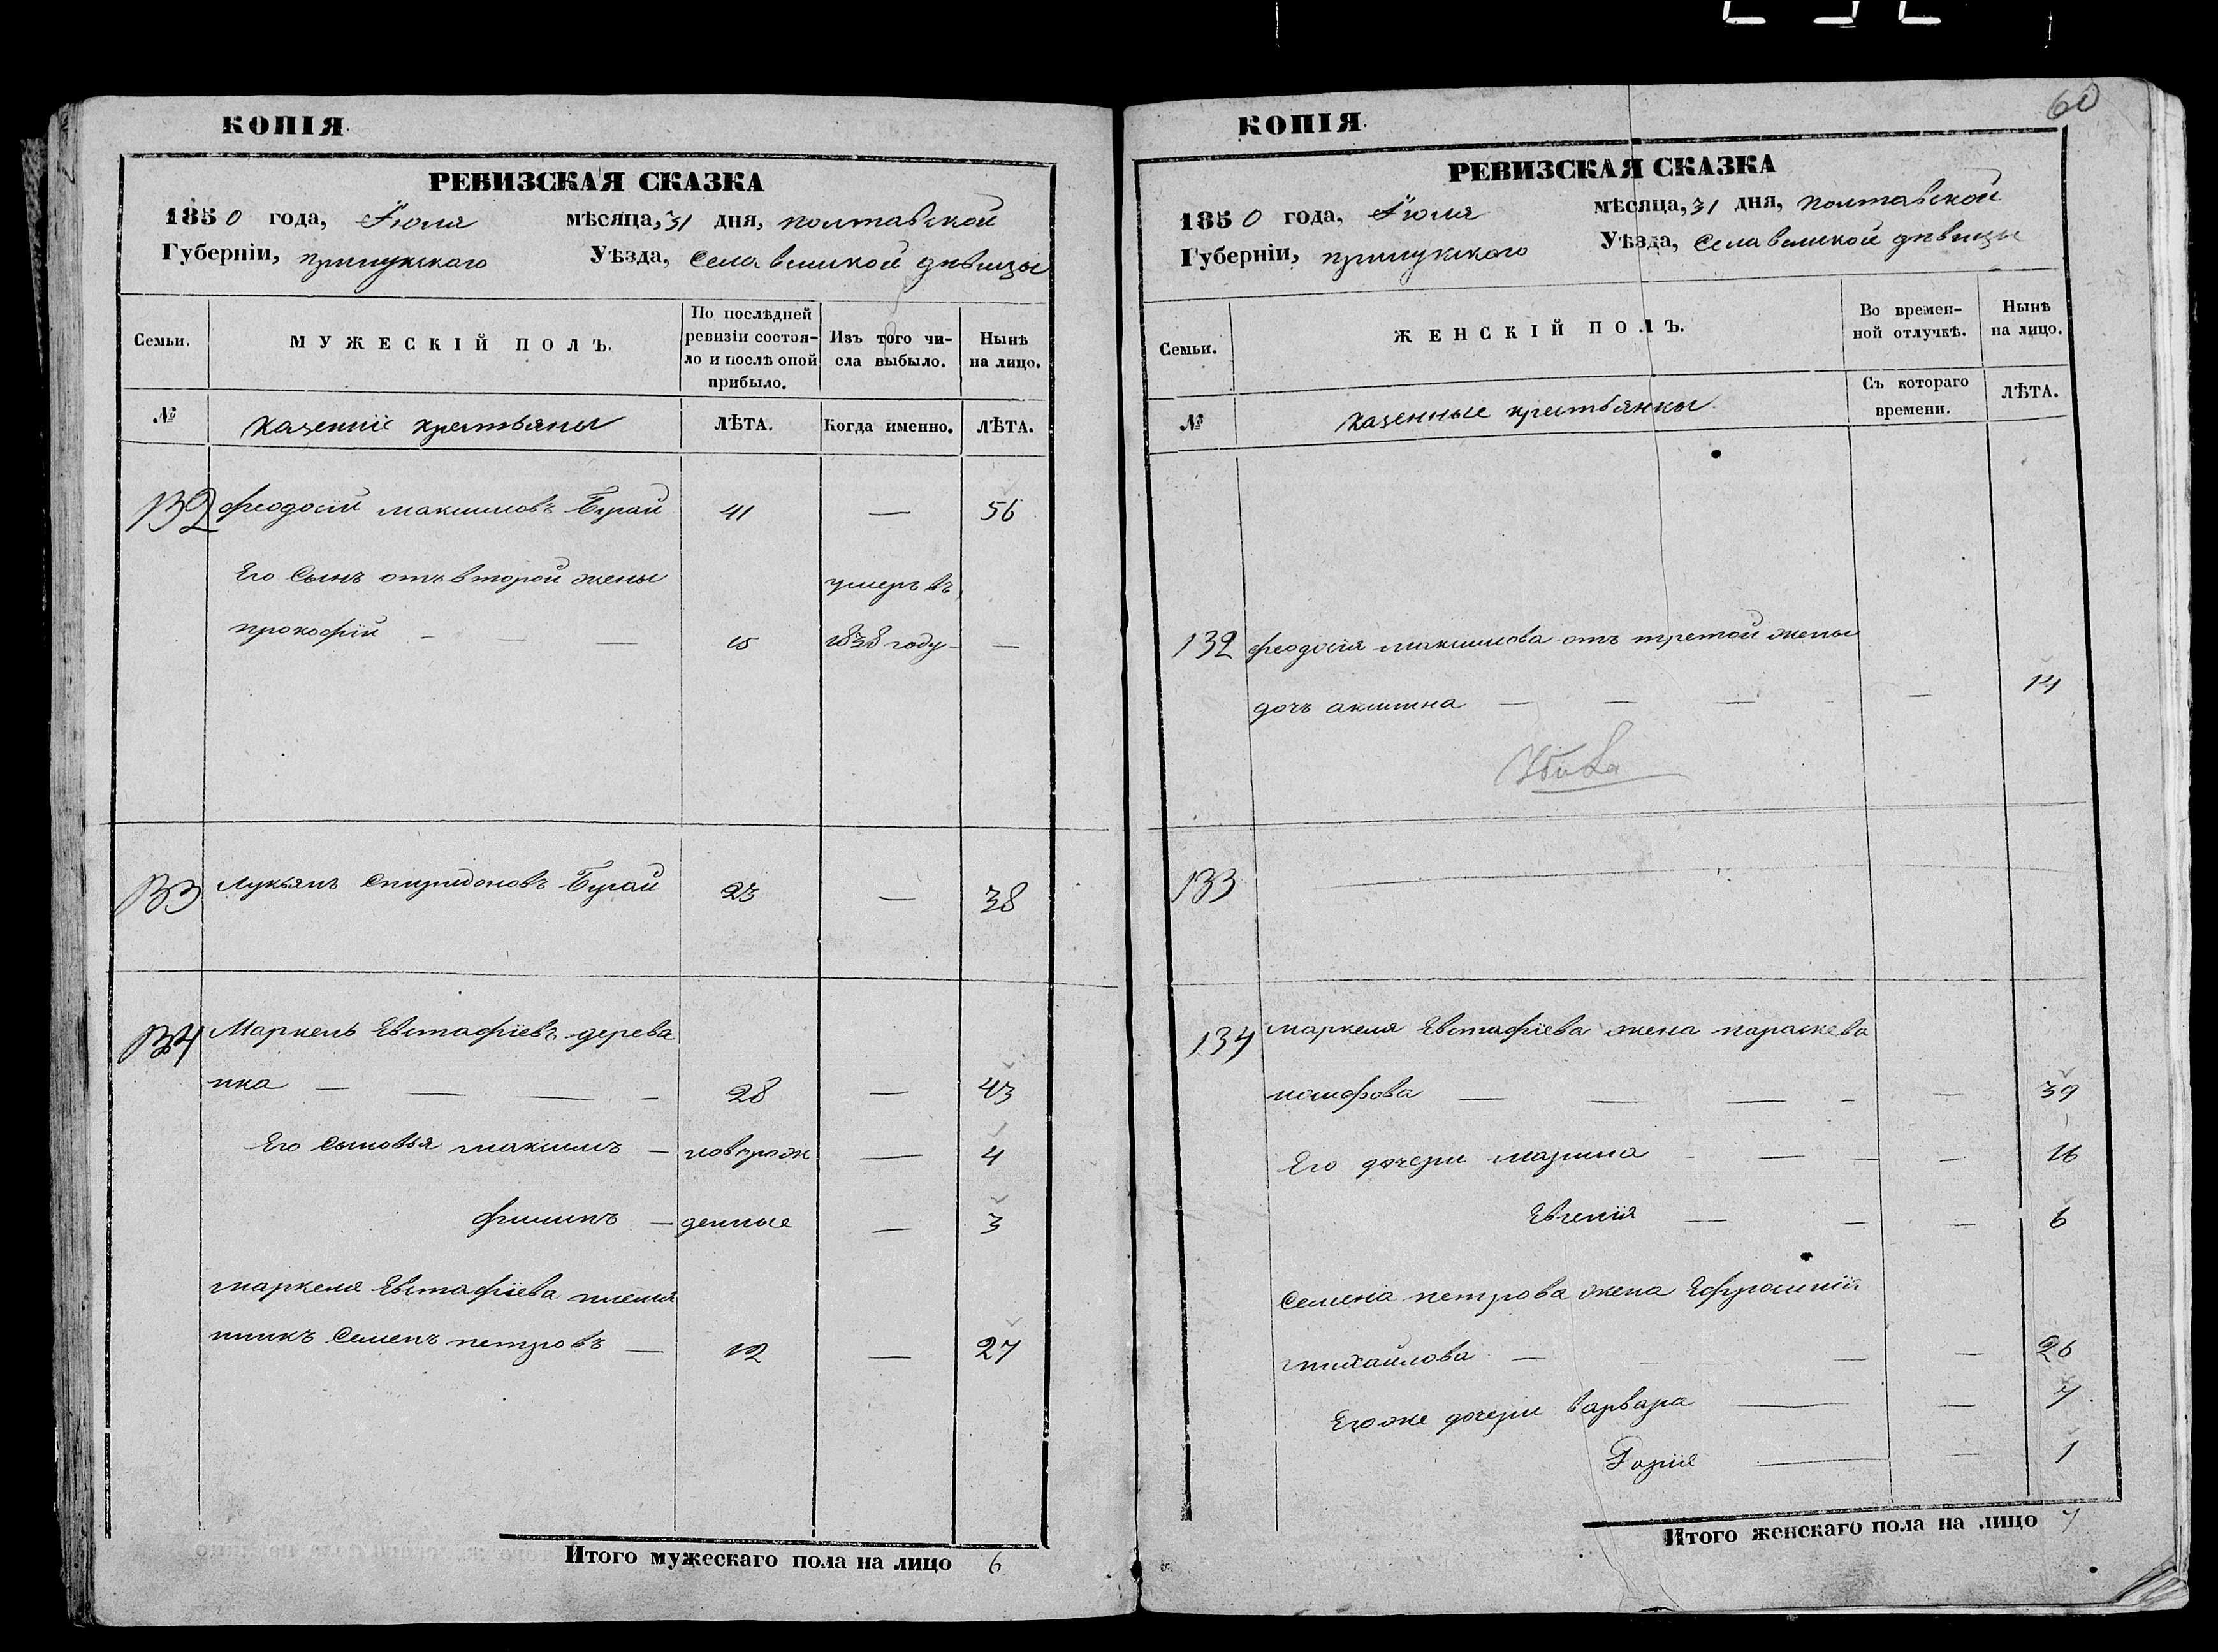 КОПІЯ.
РЕВИЗСКАЯ СКАЗКА
1850 года, Іюля мѣсяца, 31 дня, полтавской
Губерніи, прилукского Уѣзда, Села великой дѣвицы
Семьи.
МУЖЕСКІЙ ПОЛЪ.
По послѣдней
ревизіи состоя-
ло и послѣ оной
прибыло.
Изъ того чи-
сла выбыло.
Нынѣ
на лицо.
№
казенніе крестьяны
ЛѢТА.
Когда именно.
ЛѢТА.
132 феодосій максимовъ Бугай 41 — 56
Его Сынъ отъ второй жены умеръ въ
прокофій — — — 15 1838 году — —
133 Лукьянъ Спиридоновъ Бугай 23 — 38
134 Маркелъ Евстафіевъ дерева
нка — — — — 28 — 43
Его Сыновья максимъ — новорож — 4
филипъ — денные — 3
маркела Евстафіева племя
нникъ Семенъ петровъ — 12 — 27
Итого мужескаго пола на лицо 6
60
КОПІЯ.
РЕВИЗСКАЯ СКАЗКА
1850 года, Іюля мѣсяца, 31 дня, полтавской
Губерніи, прилукского Уѣзда, Села великой дѣвицы
Семьи.
ЖЕНСКІЙ ПОЛЪ.
Во времен-
ной отлучкѣ.
Нынѣ
на лицо.
№
казенные крестьянки.
Съ котораго
времени.
ЛѢТА.
132 феодосія максимова отъ третой жены
дочъ акилина — — — — 14
133
134 маркела Евстафіева жена параскева
иосифова — — — — — 39
Его дочери марина — — — — 16
Евгенія — — — 6
Семена петрова жена Ефросинія
михайлова — — — — 26
Его же дочери варвара — — 7
— — 1
Итого женскаго пола на лицо 7